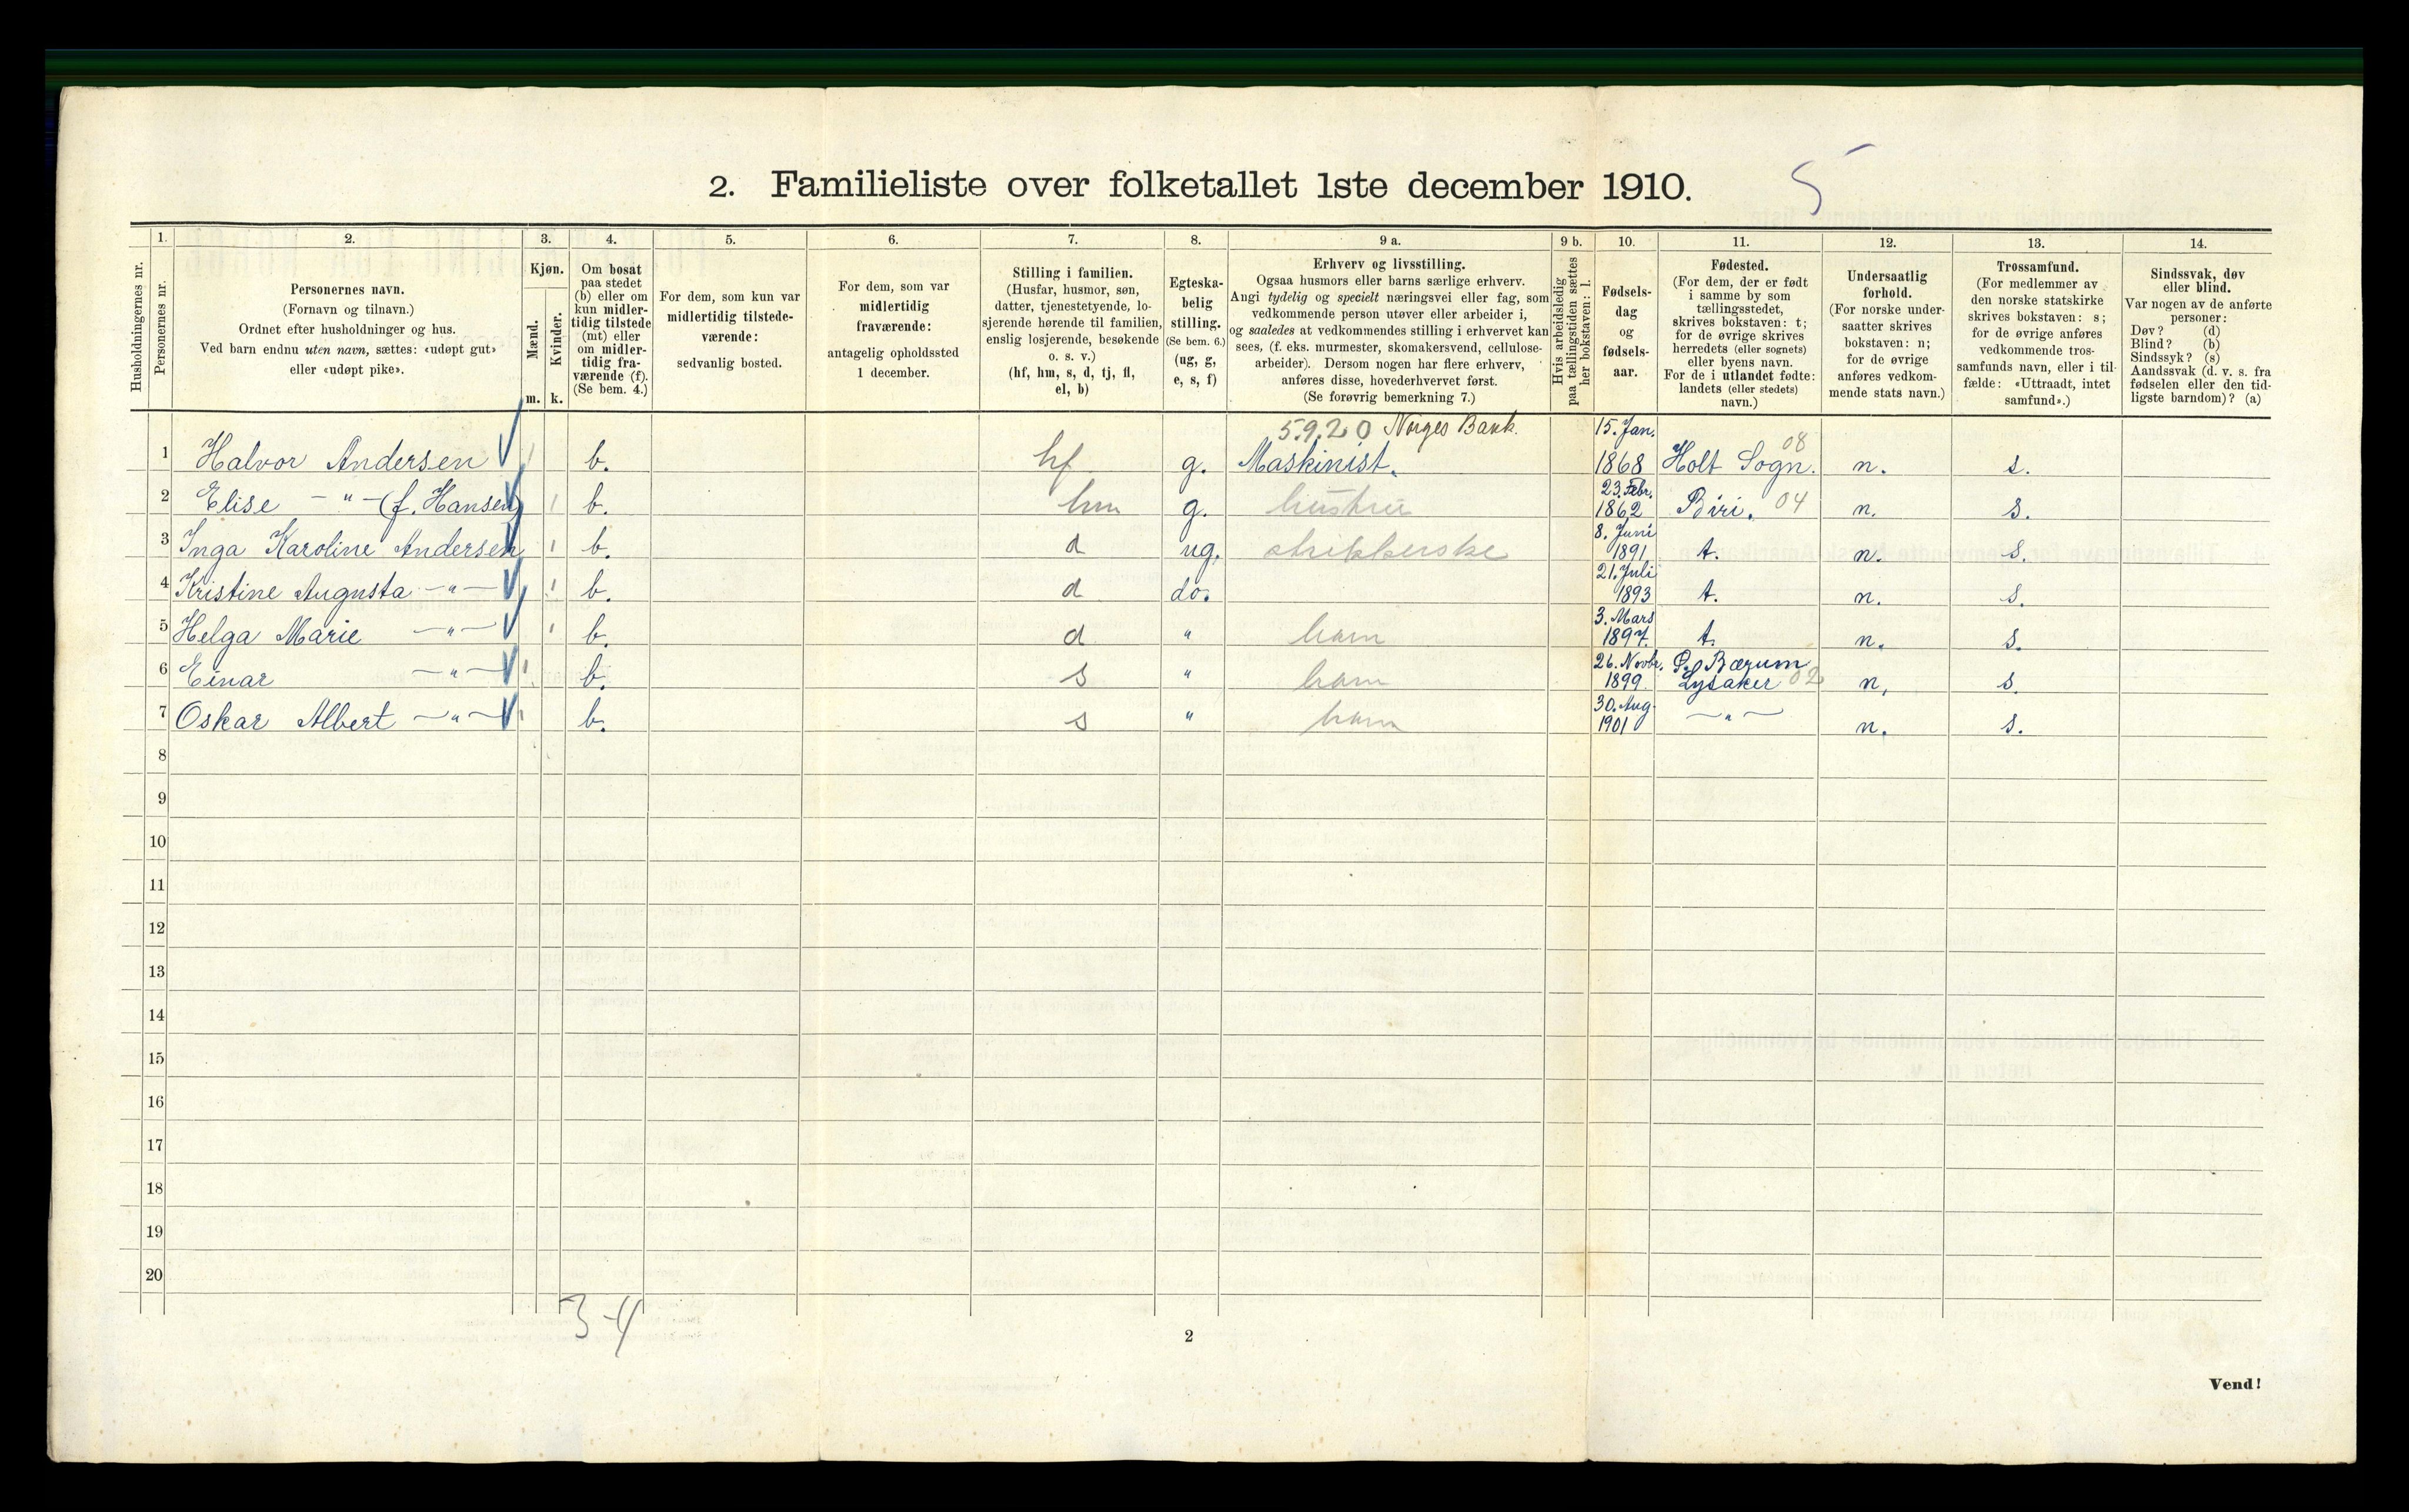 2. Familieliste over folketallet 1ste december 1910.
5
1. 2. 3. 4. 5. 6. 7. 8. 9 a. 9 b. 10. 11. 12. 13. 14.
Husholdningernes nr.
Personernes nr.
Personernes navn.
(Fornavn og tilnavn.)
Ordnet efter husholdninger og hus.
Ved barn endnu uten navn, sættes: «udøpt gut»
eller «udøpt pike».
Kjøn.
Mænd.
Kvinder.
m. k.
Om bosat
paa stedet
(b) eller om
kun midler-
tidig tilstede
(mt) eller
om midler-
tidig fra-
værende (f).
(Se bem. 4.)
For dem, som kun var
midlertidig tilstede-
værende:
sedvanlig bosted.
For dem, som var
midlertidig
fraværende:
antagelig opholdssted
1 december.
Stilling i familien.
(Husfar, husmor, søn,
datter, tjenestetyende, lo-
sjerende hørende til familien,
enslig losjerende, besøkende
o. s. v.)
(hf, hm, s, d, tj, fl,
el, b)
Egteska-
belig
stilling.
(Se bem. 6.)
(ug, g,
e, s, f)
Erhverv og livsstilling.
Ogsaa husmors eller barns særlige erhverv.
Angi tydelig og specielt næringsvei eller fag, som
vedkommende person utøver eller arbeider i,
og saaledes at vedkommendes stilling i erhvervet kan
sees, (f. eks. murmester, skomakersvend, cellulose-
arbeider). Dersom nogen har flere erhverv,
anføres disse, hovederhvervet først.
(Se forøvrig bemerkning 7.)
Hvis arbeidsledig
paa tællingstiden sættes
her bokstaven: l.
Fødsels-
dag
og
fødsels-
aar.
Fødested.
(For dem, der er født
i samme by som
tællingsstedet,
skrives bokstaven: t;
for de øvrige skrives
herredets (eller sognets)
eller byens navn.
For de i utlandet fødte:
landets (eller stedets)
navn.)
Undersaatlig
forhold.
(For norske under-
saatter skrives
bokstaven: n;
for de øvrige
anføres vedkom-
mende stats navn.)
Trossamfund.
(For medlemmer av
den norske statskirke
skrives bokstaven: s;
for de øvrige anføres
vedkommende tros-
samfunds navn, eller i til-
fælde: «Uttraadt, intet
samfund».)
Sindssvak, døv
eller blind.
Var nogen av de anførte
personer:
Døv? (d)
Blind? (b)
Sindssyk? (s)
Aandssvak (d. v. s. fra
fødselen eller den tid-
ligste barndom)? (a)
5.9.20 Norges Bank. 15. Jan. 08
1 Halvor Andersen 1 b. hf g. Maskinist. 1868 Holt Sogn. n. s.
23. Febr.
2 Elise - " - (f. Hansen) 1 b. hm g. hustru 1862 Biri. 04 n. s.
8. Juni
3 Inga Karoline Andersen 1 b. d ug. strikkerske 1891 t. n. s.
21. Juli
4 Kristine Augusta - " - 1 b. d do. 1893 t. n. s.
3. Mars
5 Helga Marie - " - 1 b. d " barn 1897. t. n. s.
26. Novbr. Bærum
6 Einar - " - 1 b. s " barn 1899 Lysaker 02 n. s.
30. Aug.
7 Oskar Albert - " - 1 b. s " barn 1901 - " - n. s.
8
9
10
11
12
13
14
15
16
17
18
19
20
3-4
2
Vend!